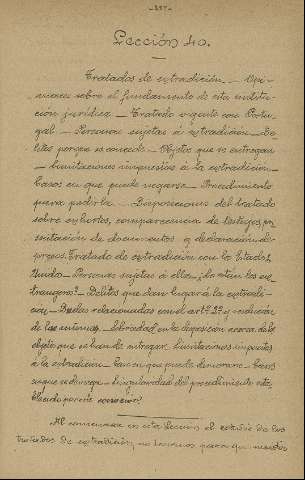 Lección 40.
Tratados de extradición. — Opi-
niones sobre el fundamento de esta institu-
ción jurídica. — Tratado vigente con Portu-
gal — Personas sujetas á extradición — De-
litos porque se concede — Objetos que se entregan
— Limitaciones impuestas á la extradición —
Casos en que puede negarse — Procedimiento
para pedirla — Disposiciones del tratado
sobre exhortos, comparecencia de testigos, pre-
sentación de documentos y declaración de
presos. Tratado de extradición con los Estados
Unidos — Personas sujetas á ella ¿lo están los ex-
trangeros? — Delitos que dan lugar á la extradi-
ción — Dudas relacionadas con el artº 2º
de las — en la disposición acerca de los
objetos que se han de entregar. Limitaciones impuestas
á la extradición — Casos en que puede — Casos
en que se — Singularidad del procedimiento esta-
blecido por este convenio?
Al comenzar en esta lección el estudio de los
tratados de extradición, no hacemos para que